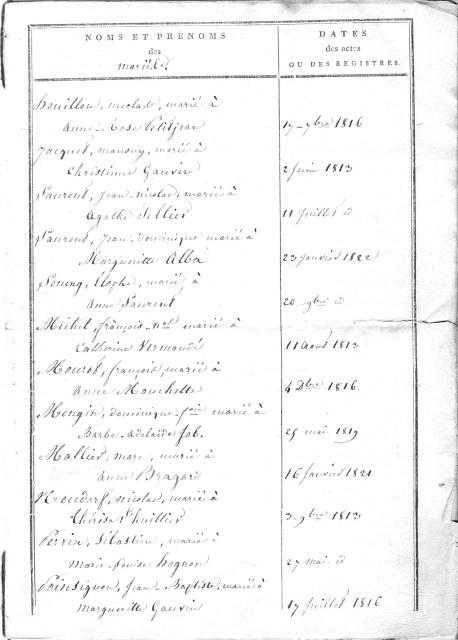 NOMS ET PRÉNOMS
des
mariés
DATES
des actes
OU DES REGISTRES.
houillon, nicolas, marié à
anne-Rose Petitjean
17-7bre 1816
Jacquet, mansuy, marié à
Christinne Gauvin
2 Juin 1813
Laurent, Jean-nicolas, marié à
Agathe Sellier
11 Juillet id
Laurent, Jean-dominique marié à
Margueritte Alba
23 Janvier 1822
marié, à
anne Laurent
20-9bre id
Michel, françois-nas marié à
Catherine Vermandé
11 août 1813
Mourot, françois, marié à
anne Mouchette
4 Dbre 1816
Mengin, dominique-foix marié à
Barbe-adelaïde Job.
25 mai 1819
Mallier, marc, marié à
anne Bragard
16 Janvier 1821
nicolas, marié à
thérèse l'huillier
3-9bre 1813
Perrin, Sébastien, marié à
marie-Louise hognon
27 mai id
Poinsignon, Jean-Baptiste, marié à
margueritte Gauvin
17 Juillet 1816